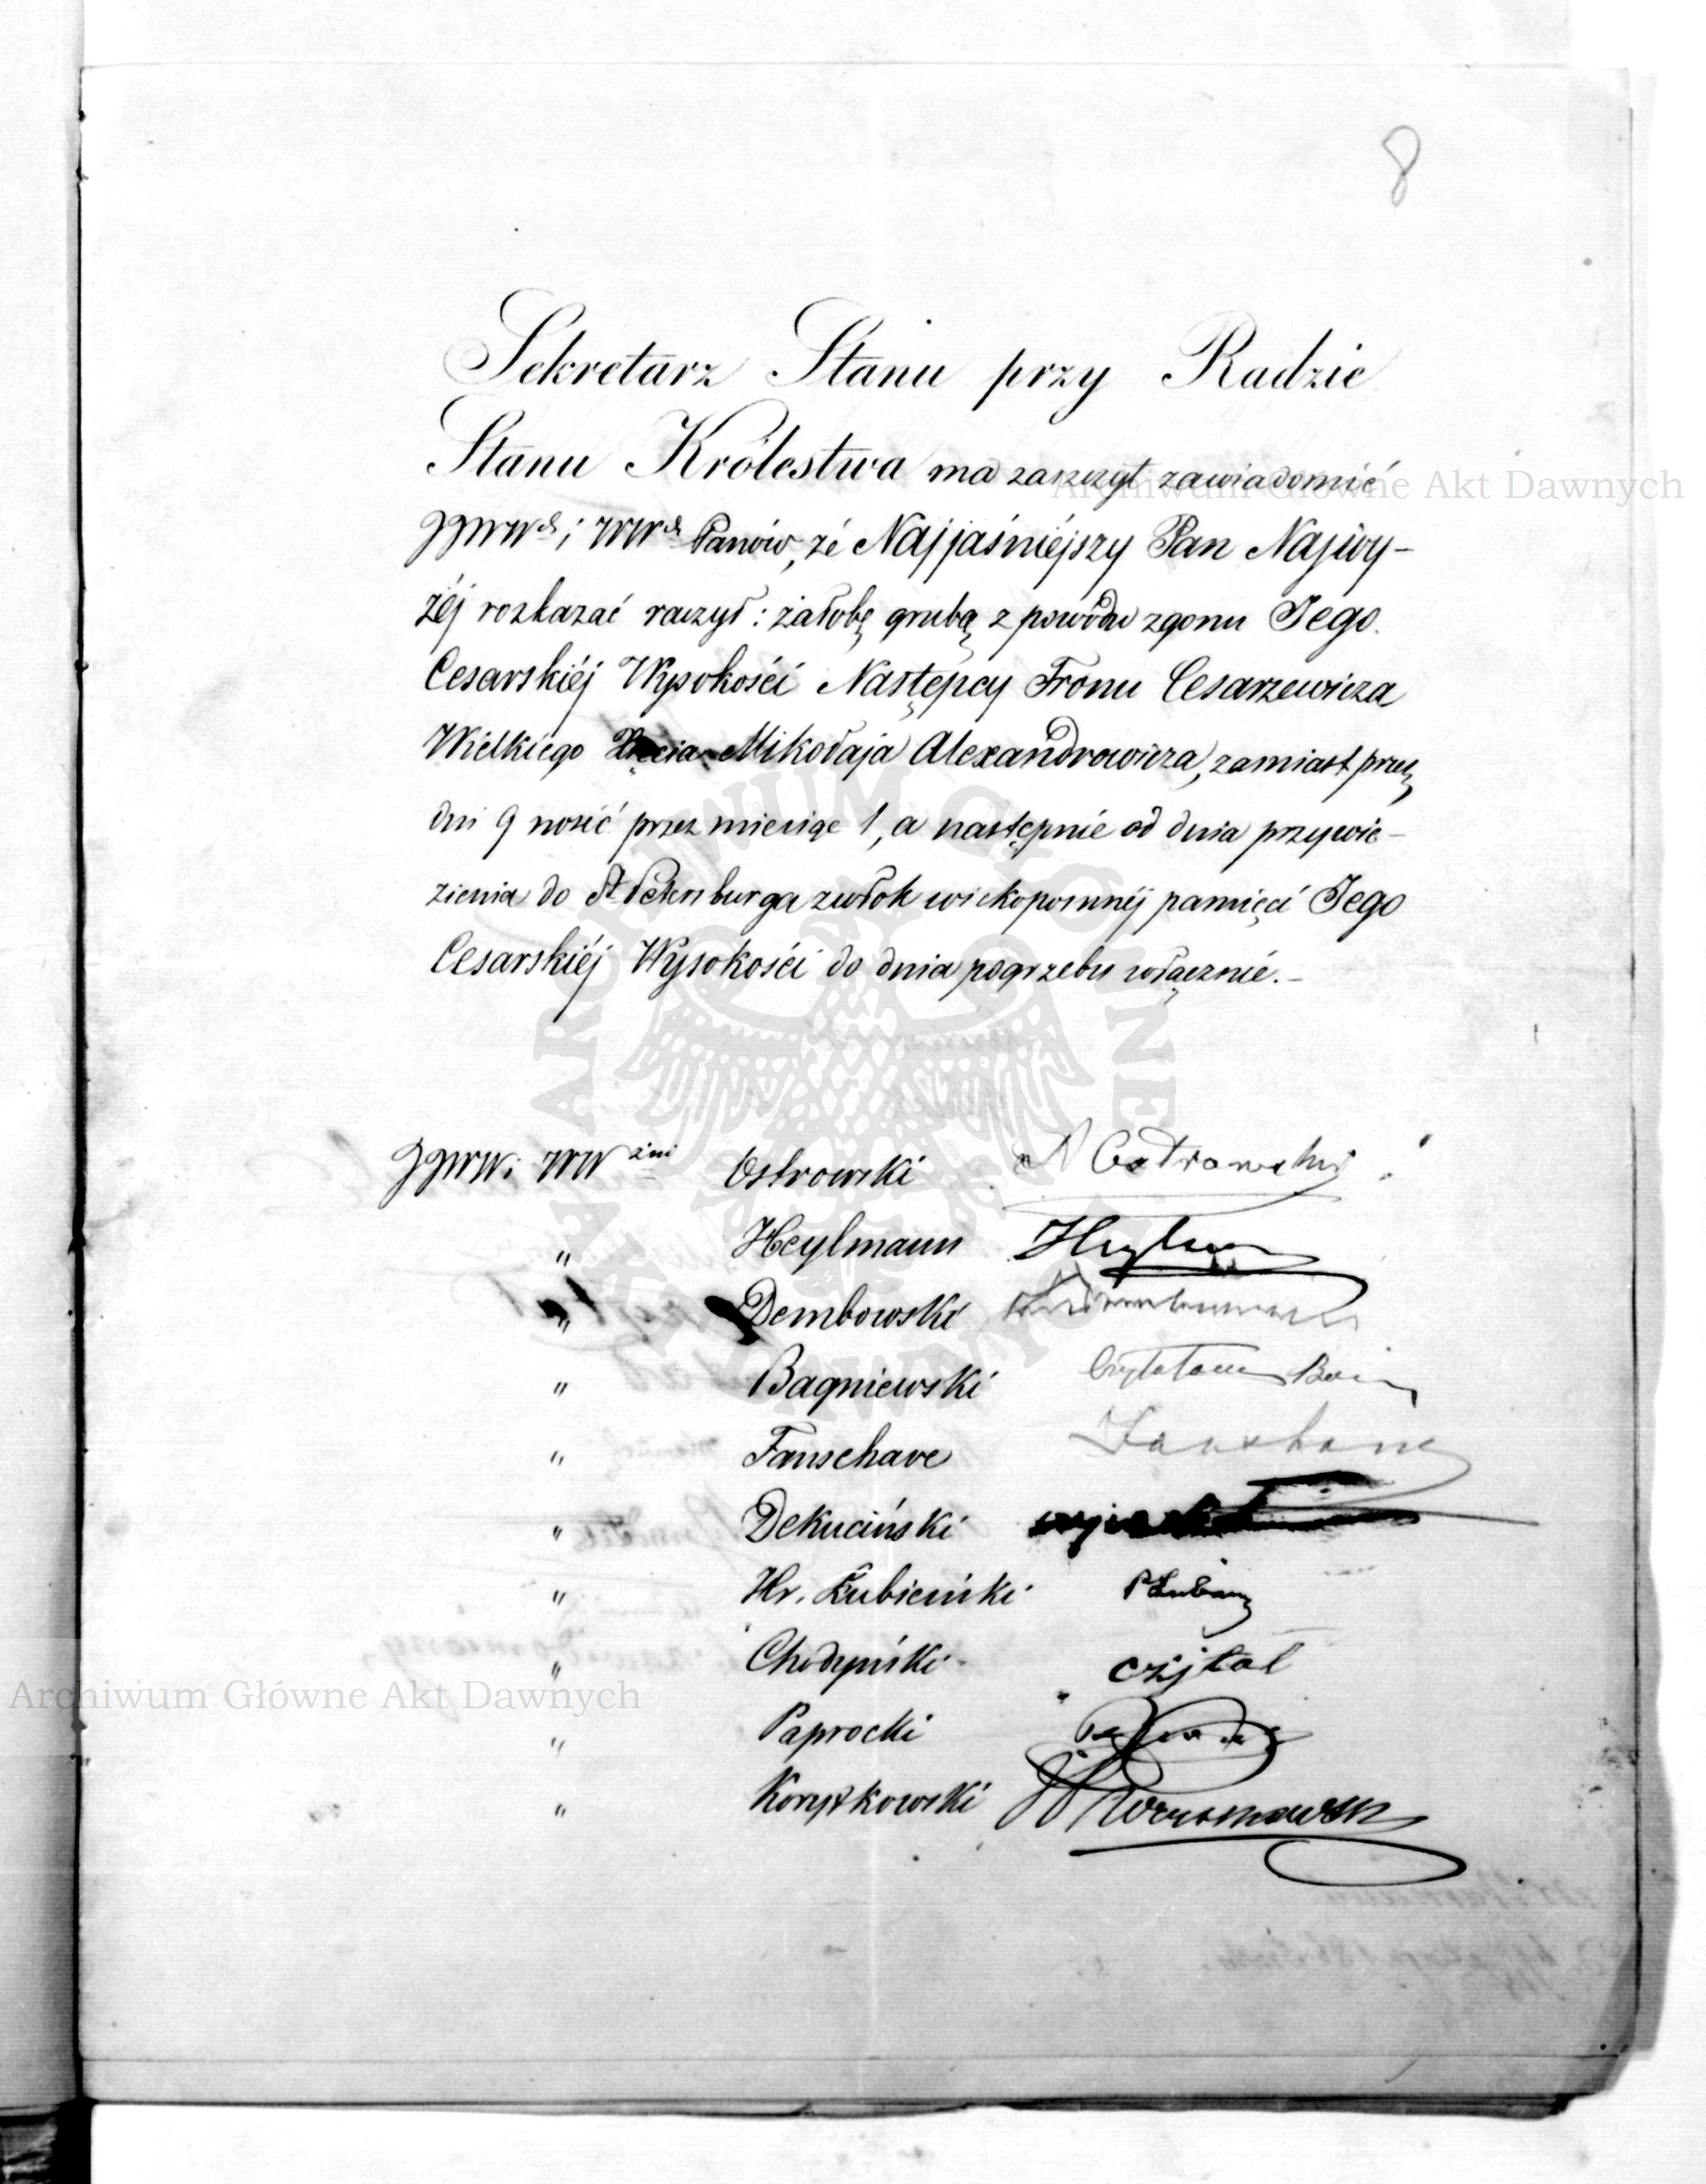 8
Sekretarz Stanu przy Radzie
Stanu Królestwa ma zaszczyt zawiadomić
JJWW i WW Panów, że Najjaśniéjszy Pan Najwy-
żéj rozkazać raczył: żałobę grubą z powodu zgonu Jego
Cesarskiéj Wysokości Następcy Tronu Cesarzewicza
Wielkiego Xięcia Mikołaja Alexandrowicza, zamiast przez
dni 9 nosić przez miesiąc 1, a następnie od dnia przywie-
zienia do St Petersburga zwłok wiekopomnéj pamięci Jego
Cesarskiéj Wysokości do dnia pogrzebu włącznie.-
JJWW i WW żni Ostrowski Ostrowski
" Heylmann
" Dembowski
" Bagniewski Czytałem
" Fanschave Fanshave
" Dekuciński
" Hr. Łubieński
" Chodyński czytał
" Paprocki
" Korytkowski
Archiwum Główne Akt Dawnych
Archiwum Główne Akt Dawnych
ARCHIWUM GŁÓWNE AKT DAWNYCH